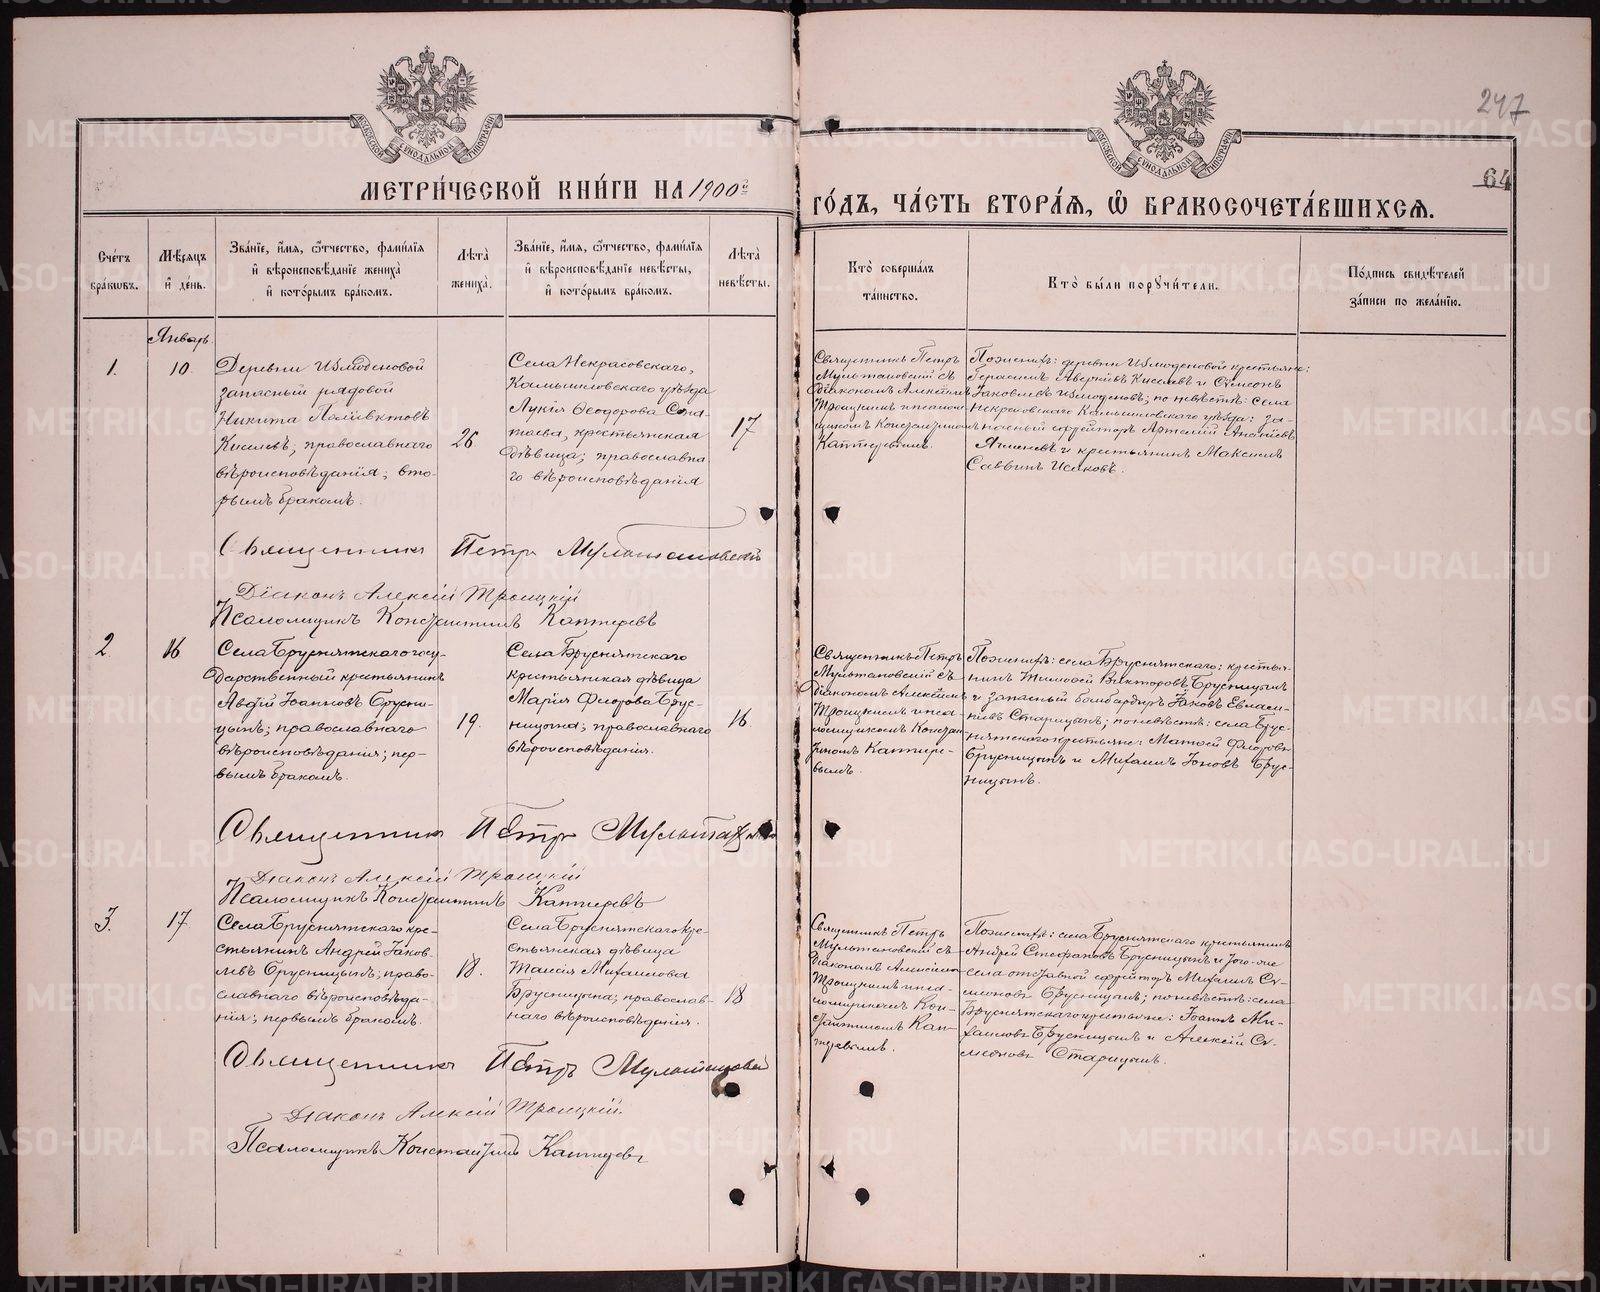 247
64
МОСКОВСКОЙ СѴНОДАЛЬНОЙ ТИПОГРАФІИ
МОСКОВСКОЙ СѴНОДАЛЬНОЙ ТИПОГРАФІИ
МЕТРИ́ЧЕСКОЙ КНИ́ГИ НА 1900й
ГО́ДЪ, ЧА́СТЬ ВТОРА́Я, Ѿ БРАКОСОЧЕТА́ВШИХСЯ.
Сче́тъ
бра́кѡвъ.
Мѣ́сяцъ
и҆ де́нь.
Зва́нїе, и҆́мя, ѻ҆́тчество, фами́лїя
и҆ вѣроисповѣ́данїе жениха̀
и҆ кото́рымъ бра́комъ.
Лѣта̀
жениха̀.
Зва́нїе, и҆́мя, ѻ҆́тчество, фами́лїя
и҆ вѣроисповѣ́данїе невѣ́сты,
и҆ кото́рымъ бра́комъ.
Лѣта̀
невѣ́сты.
Кто̀ соверша́лъ
та́инство.
Кто̀ бы́ли порꙋчи́тели.
По́дпись свидѣ́телей
за́писи по жела́нїю.
Январь
1.
10.
Деревни Измоденовой
запасный рядовой
Никита Поліевктовъ
Киселевъ, православнаго
вѣроисповѣданія; вто-
рымъ бракомъ.
26
Села Некрасовскаго,
Камышловскаго уѣзда
Лукія Ѳеодорова
крестьянская
дѣвица; православна-
го вѣроисповѣданія
17
Священникъ Петръ
Мультановскій съ
діакономъ Алексѣемъ
Троицкимъ и псалом-
щикомъ Константиномъ
Каптеревымъ.
По женихѣ: деревни Измоденовой крестьяне:
Герасимъ Аверкіевъ Киселевъ и Симеонъ
Іаковлевъ Измоденовъ; по невѣстѣ: села
Некрасовскаго Камышловскаго уѣзда: за-
пасный ефрейторъ Артемій Ананіевъ
и крестьянинъ Максимъ
Саввинъ Исаковъ.
Священникъ Петръ Мультановскій
Діаконъ Алексій Троицкій
Псаломщикъ Константинъ Каптеревъ
2.
16
Села Бруснятскаго госу-
дарственный крестьянинъ
Авдій Іоанновъ Брусни-
цынъ; православнаго
вѣроисповѣданія; пер-
вымъ бракомъ.
19.
Села Бруснятскаго
крестьянская дѣвица
Марія Флорова Брус-
ницына; православнаго
вѣроисповѣданія.
16.
Священникъ Петръ
Мультановскій съ
діакономъ Алексѣемъ
Троицкимъ и пса-
ломщикомъ Констан-
тиномъ Каптере-
вымъ.
По женихѣ: села Бруснятскаго: крестья-
нинъ Тимоѳей Викторовъ Брусницынъ
и запасный бомбардиръ Іаковъ
Старицынъ; по невѣстѣ: села Брус-
нятскаго крестьяне: Матѳей Флоровъ
Брусницынъ и Михаилъ Іоновъ Брус-
ницынъ.
Священникъ Петръ Мультановскій
Діаконъ Алексій Троицкій
Псаломщикъ Константинъ Каптеревъ
3.
17
Села Бруснятскаго кре-
стьянинъ Андрей Іаков-
левъ Брусницынъ; право-
славнаго вѣроисповѣда-
нія; первымъ бракомъ.
18.
Села Бруснятскаго кре-
стьянская дѣвица
Таисія Михаилова
Брусницына; православ-
наго вѣроисповѣданія.
18
Священникъ Петръ
Мультановскій съ
діакономъ Алексѣемъ
Троицкимъ и пса-
ломщикомъ Кон-
стантиномъ Кап-
теревымъ.
По женихѣ: села Бруснятскаго крестьянинъ
Андрей Стефановъ Брусницынъ и того-же
села отставной ефрейторъ Михаилъ Си-
меоновъ Брусницынъ; по невѣстѣ: села
Бруснятскаго крестьяне: Іоаннъ Ми-
хаиловъ Брусницынъ и Алексій Си-
меоновъ Старицынъ.
Священникъ Петръ Мультановскій
Діаконъ Алексій Троицкій.
Псаломщикъ Константинъ Каптеревъ
METRIKI.GASO-URAL.RU